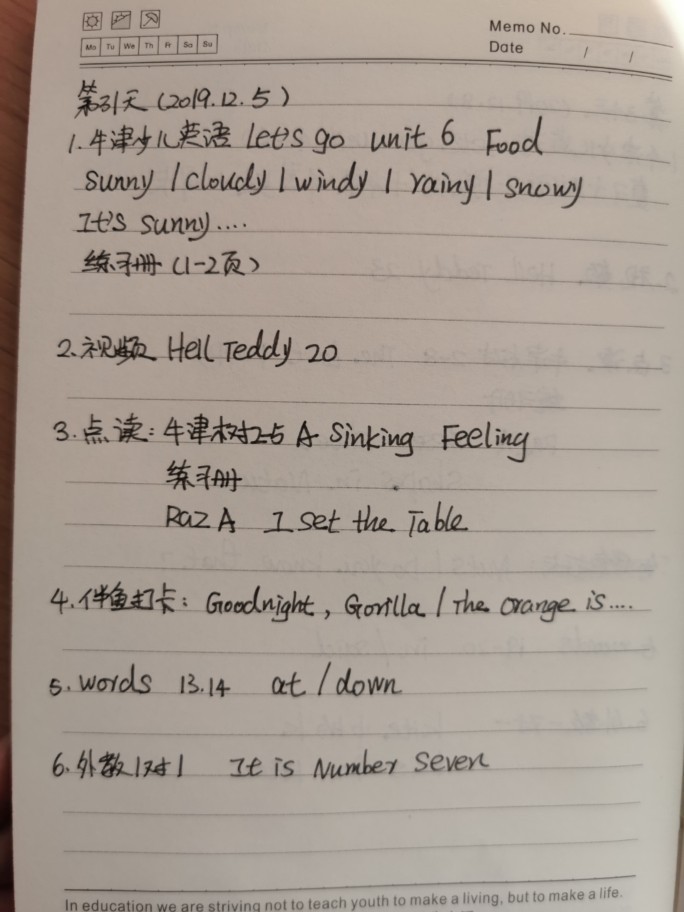 Memo No.
Mo Tu We Th Fr Sa Su
Date / /
第31天(2019.12.5)
1.牛津少儿英语 Let's go unit 6 Food
sunny / cloudy / windy / rainy / snowy
It's sunny....
练习册(1-2页)
2.视频 Hell Teddy 20
3.点读:牛津树2-5 A Sinking Feeling
练习册
Raz A I set the Table
4.伴鱼打卡: Goodnight, Gorilla / The orange is....
5.words 13.14 at / down
6.外教1对1 It is Number Seven
In education we are striving not to teach youth to make a living, but to make a life.